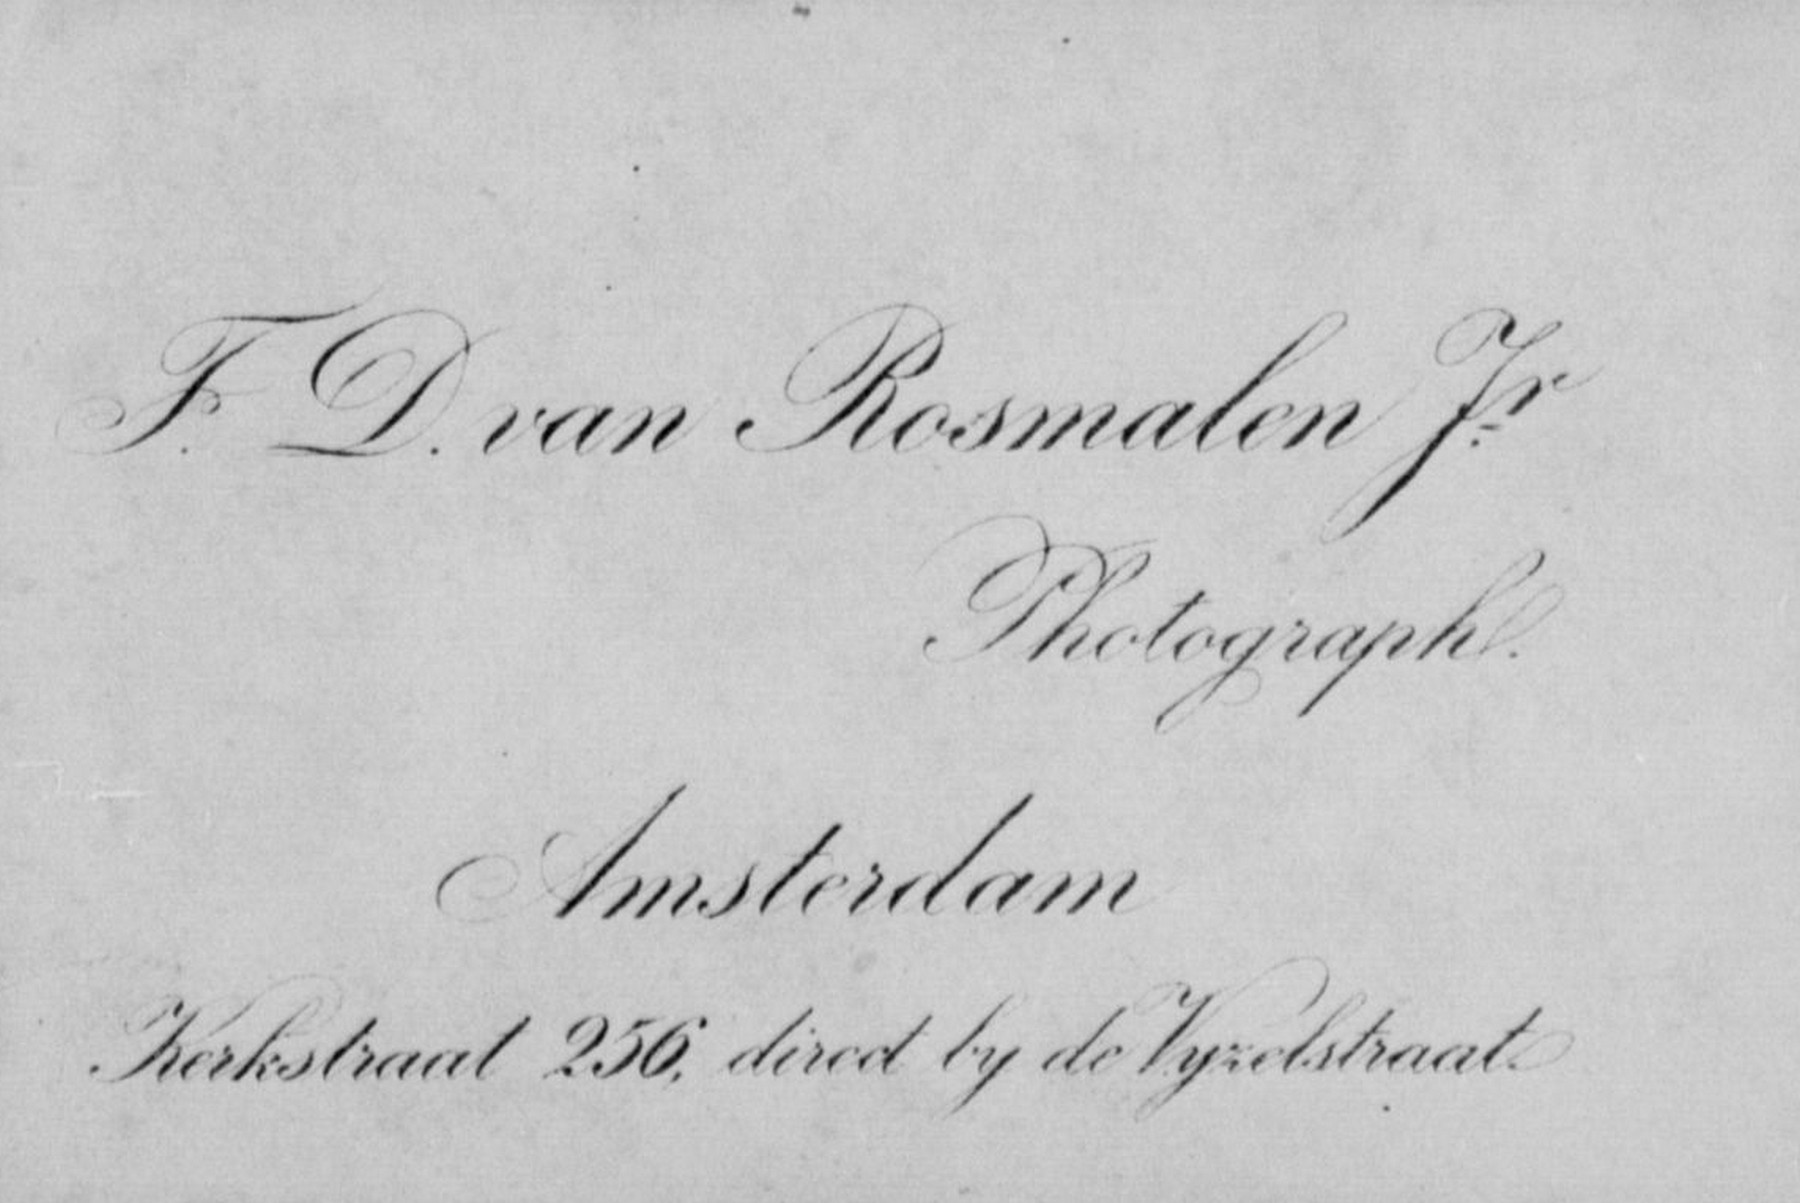 F. D. van Rosmalen Jr.
Photograph.
Amsterdam
Kerkstraat 256, direct by de Vyzelstraat.